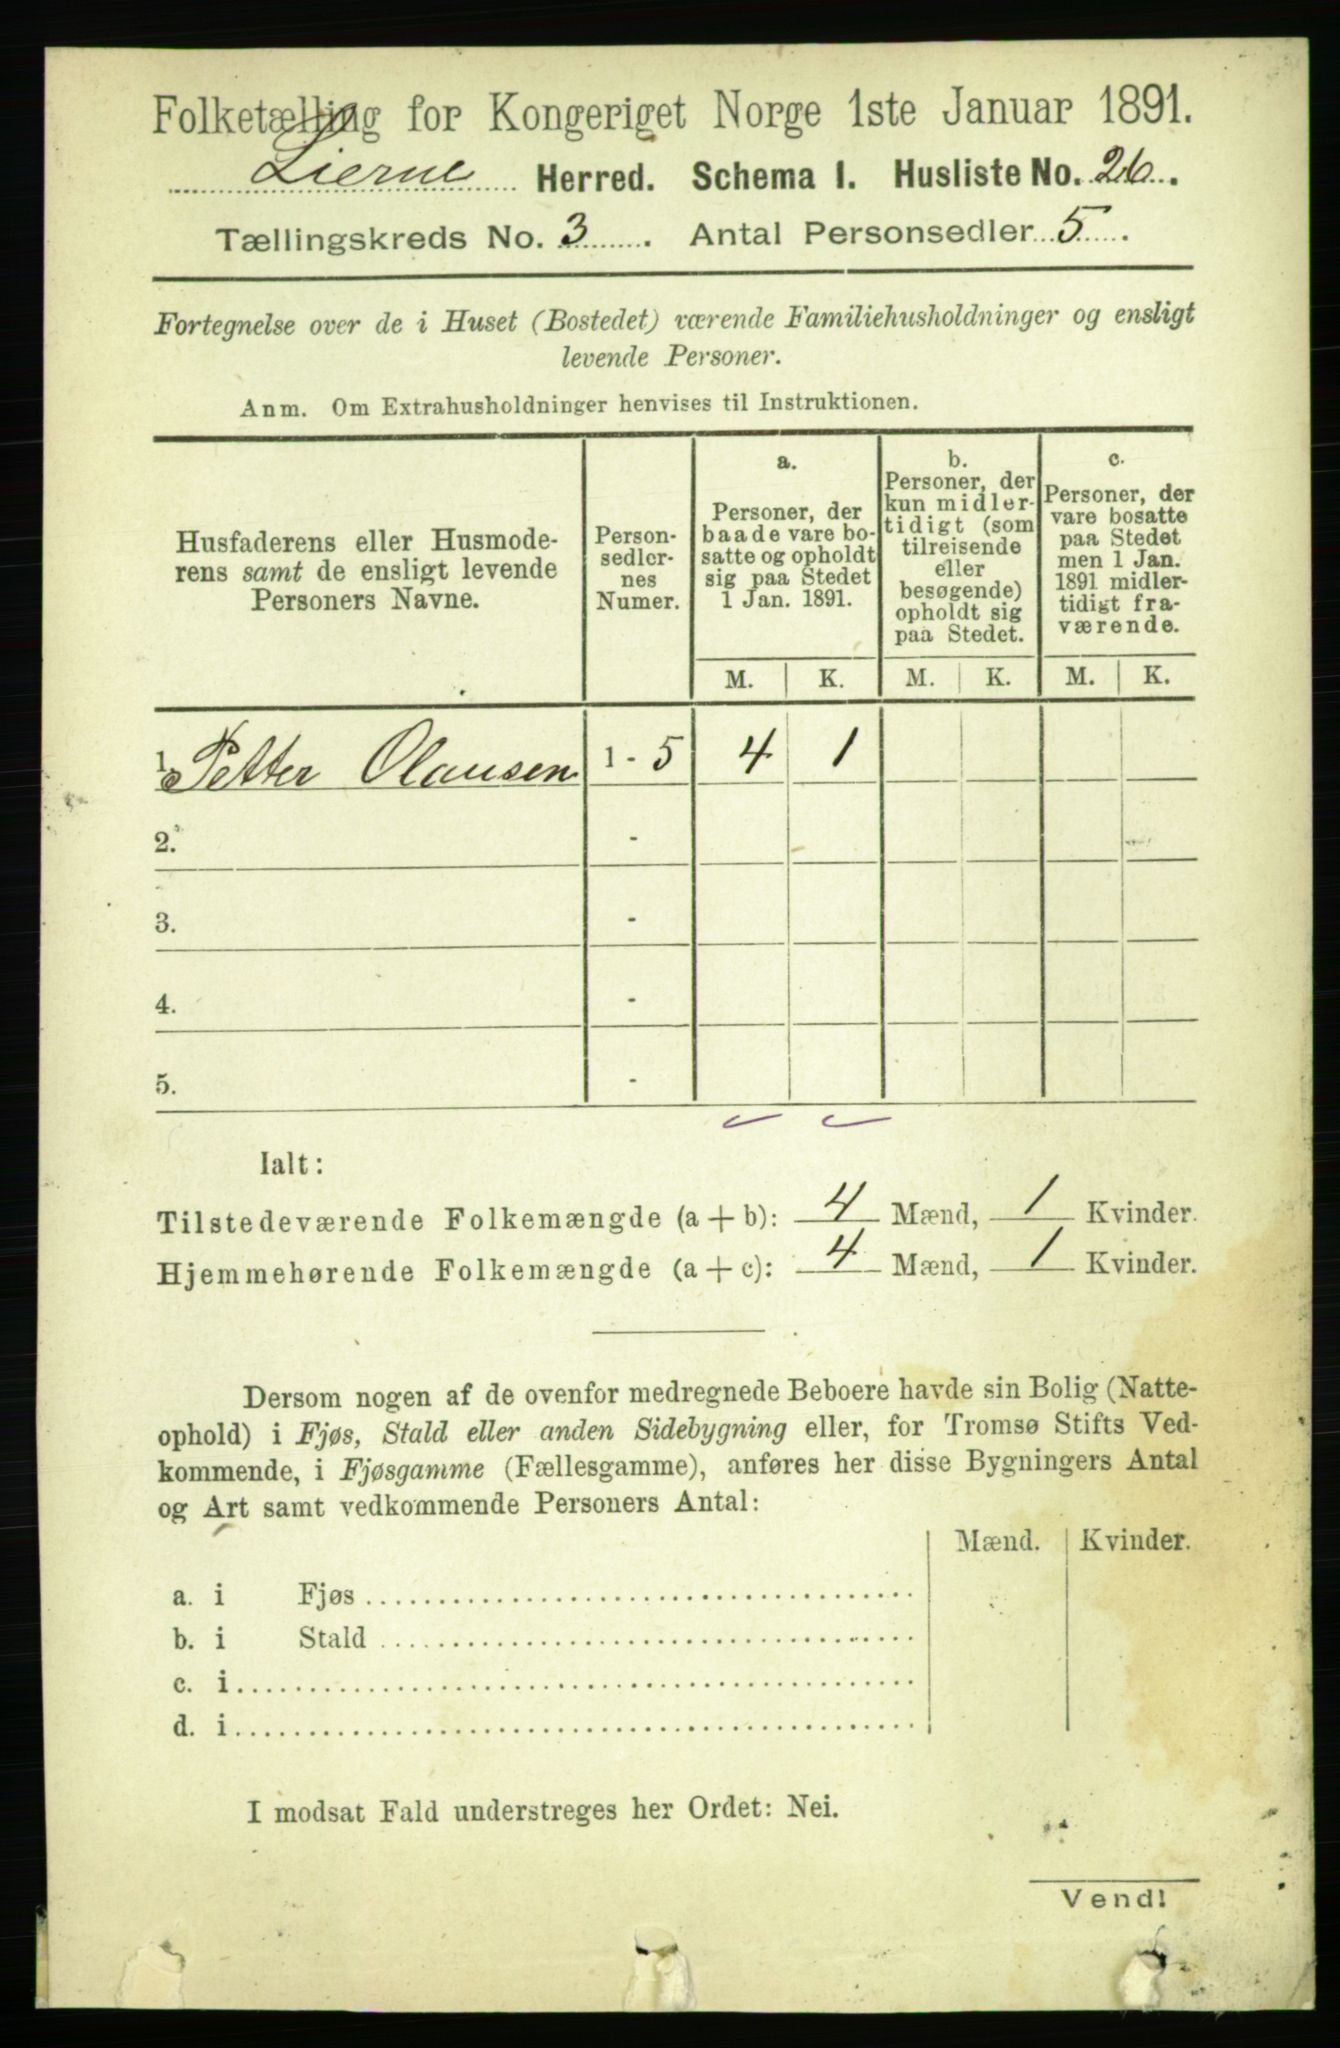 Folketælling for Kongeriget Norge 1ste Januar 1891.
Lierne Herred. Schema I. Husliste No. 26.
Tællingskreds No. 3. Antal Personsedler 5.
Fortegnelse over de i Huset (Bostedet) værende Familiehusholdninger og ensligt
levende Personer.
Anm. Om Extrahusholdninger henvises til Instruktionen.
Husfaderens eller Husmode-
rens samt de ensligt levende
Personers Navne.
Person-
sedler-
nes
Numer.
a.
Personer, der
baade vare bo-
satte og opholdt
sig paa Stedet
1 Jan. 1891.
b.
Personer, der
kun midler-
tidigt (som
tilreisende
eller
besøgende)
opholdt sig
paa Stedet.
c.
Personer, der
vare bosatte
paa Stedet
men 1 Jan.
1891 midler-
tidigt fra-
værende.
M. K. M. K. M. K.
1. Petter Olausen 1 - 5 4 1
2. -
3. -
4. -
5. -
Ialt:
Tilstedeværende Folkemængde (a + b): 4 Mænd, 1 Kvinder.
Hjemmehørende Folkemængde (a + c): 4 Mænd, 1 Kvinder.
Dersom nogen af de ovenfor medregnede Beboere havde sin Bolig (Natte-
ophold) i Fjøs, Stald eller anden Sidebygning eller, for Tromsø Stifts Ved-
kommende, i Fjøsgamme (Fællesgamme), anføres her disse Bygningers Antal
og Art samt vedkommende Personers Antal:
Mænd. Kvinder.
a. i Fjøs
b. i Stald
c. i
d. i
I modsat Fald understreges her Ordet: Nei.
Vend!